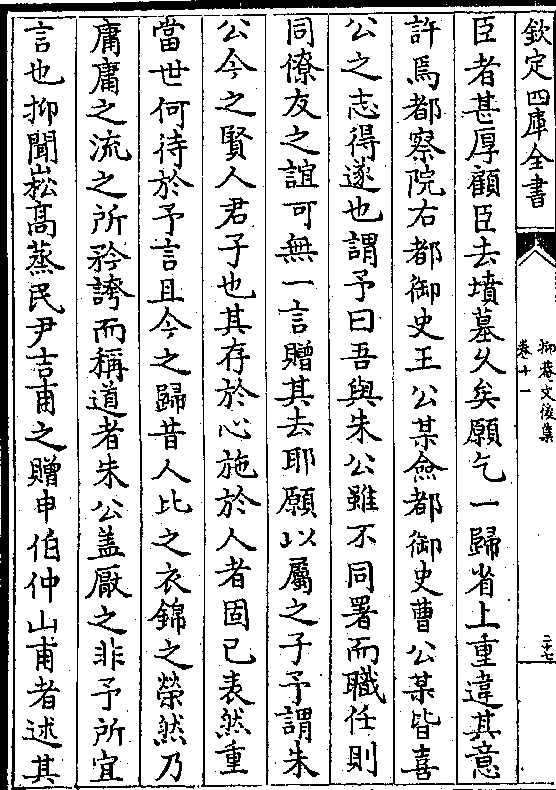 欽定四庫全書
抑菴文後集
卷十一
二十七
臣者甚厚顧臣去墳墓久矣願乞一歸省上重違其意
許焉都察院右都御史王公某僉都御史曹公某皆喜
公之志得遂也謂予曰吾與朱公雖不同署而職任則
同僚友之誼可無一言贈其去耶願以屬之子予謂朱
公今之賢人君子也其存於心施於人者固已表然重
當世何待於予言且今之歸昔人比之衣錦之榮然乃
庸庸之流之所矜誇而稱道者朱公盖厭之非予所宜
言也抑聞崧高蒸民尹吉甫之贈申伯仲山甫者述其